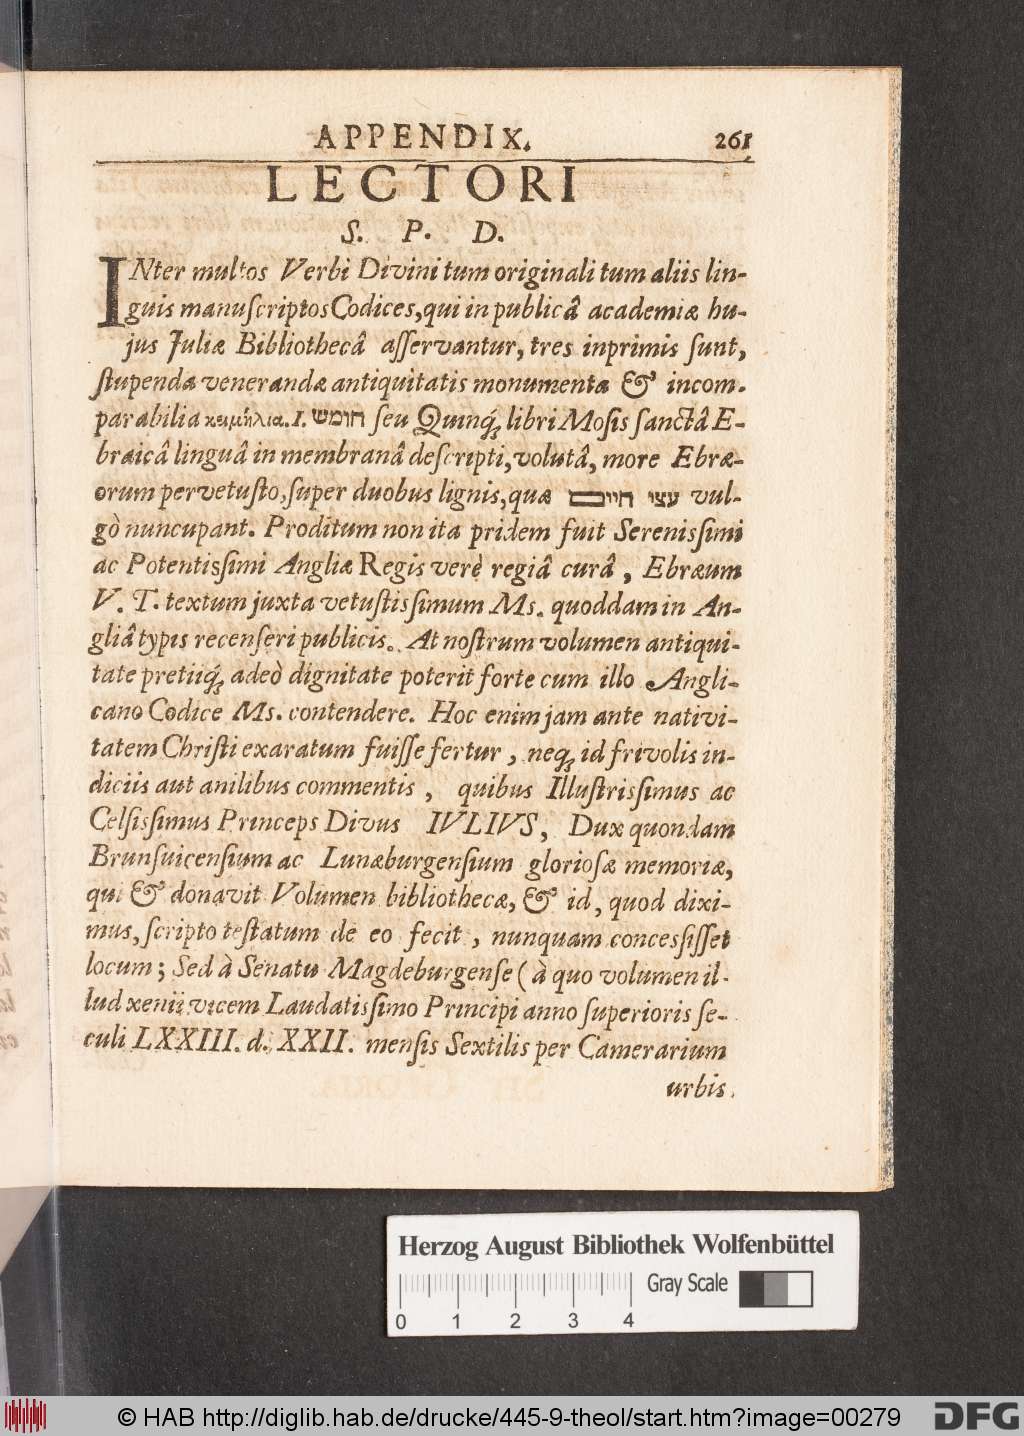 APPENDIX. 261
LECTORI
S. P. D.
INter multos Verbi Divini tum originali tum aliis lin-
guis manuſcriptos Codices, qui in publicâ academiæ hu-
jus Juliæ Bibliothecâ aſſervantur, tres inprimis ſunt,
ſtupenda venerandæ antiquitatis monumenta & incom-
parabilia κειμήλια. I. חומש ſeu Quinq́; libri Moſis ſanctâ E-
braicâ linguâ in membranâ deſcripti, volutâ, more Ebræ-
orum pervetuſto, ſuper duobus lignis, quæ עצי חיים vul-
gò nuncupant. Proditum non ita pridem fuit Sereniſſimi
ac Potentiſſimi Angliæ Regis verè regiâ curâ, Ebræum
V. T. textum juxta vetuſtiſſimum Ms. quoddam in An-
gliâ typis recenſeri publicis. At noſtrum volumen antiqui-
tate pretiiq́; adeò dignitate poterit forte cum illo Angli-
cano Codice Ms. contendere. Hoc enim jam ante nativi-
tatem Chriſti exaratum fuiſſe fertur, neq; id frivolis in-
diciis aut anilibus commentis, quibus Illuſtriſſimus ac
Celſiſſimus Princeps Divus IVLIVS, Dux quondam
Brunſuicenſium ac Lunæburgenſium glorioſæ memoriæ,
qui & donavit Volumen bibliothecæ, & id, quod dixi-
mus, ſcripto teſtatum de eo fecit, nunquam conceſſiſſet
locum; Sed à Senatu Magdeburgenſe (à quo volumen il-
lud xenii vicem Laudatiſſimo Principi anno ſuperioris ſe-
culi LXXIII. d. XXII. menſis Sextilis per Camerarium
urbis
Herzog August Bibliothek Wolfenbüttel
Gray Scale
0 1 2 3 4
© HAB http://diglib.hab.de/drucke/445-9-theol/start.htm?image=00279
DFG